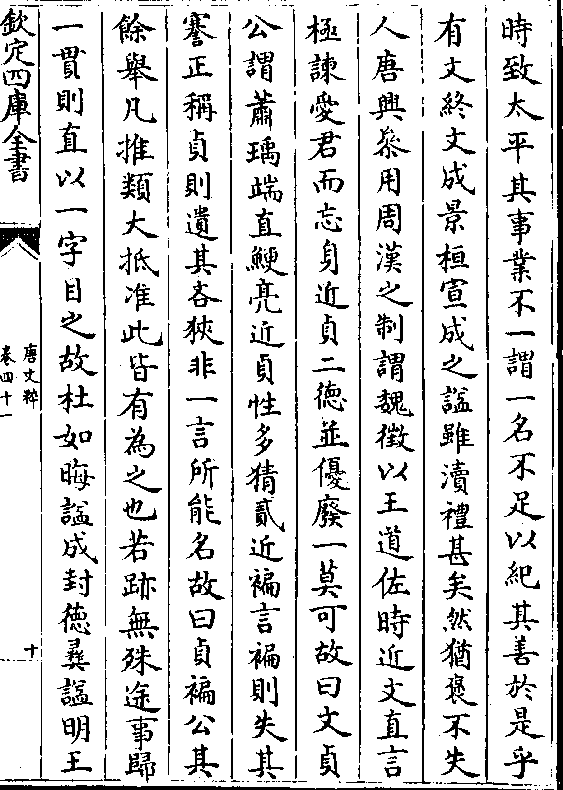 時致太平其事業不一謂一名不足以紀其善於是乎
有文終文成景桓宣成之諡雖瀆禮甚矣然猶褒不失
人唐興叅用周漢之制謂魏徵以王道佐時近文直言
極諫愛君而忘身近貞二德並優廢一莫可故曰文貞
公謂蕭瑀端直鯁亮近貞性多猜貳近褊言褊則失其
謇正稱貞則遺其吝狹非一言所能名故曰貞褊公其
餘舉凡推類大抵准此皆有為之也若跡無殊途事歸
一貫則直以一字目之故杜如晦諡成封德彞諡明王
欽定四庫全書
唐文粹
卷四十一
十